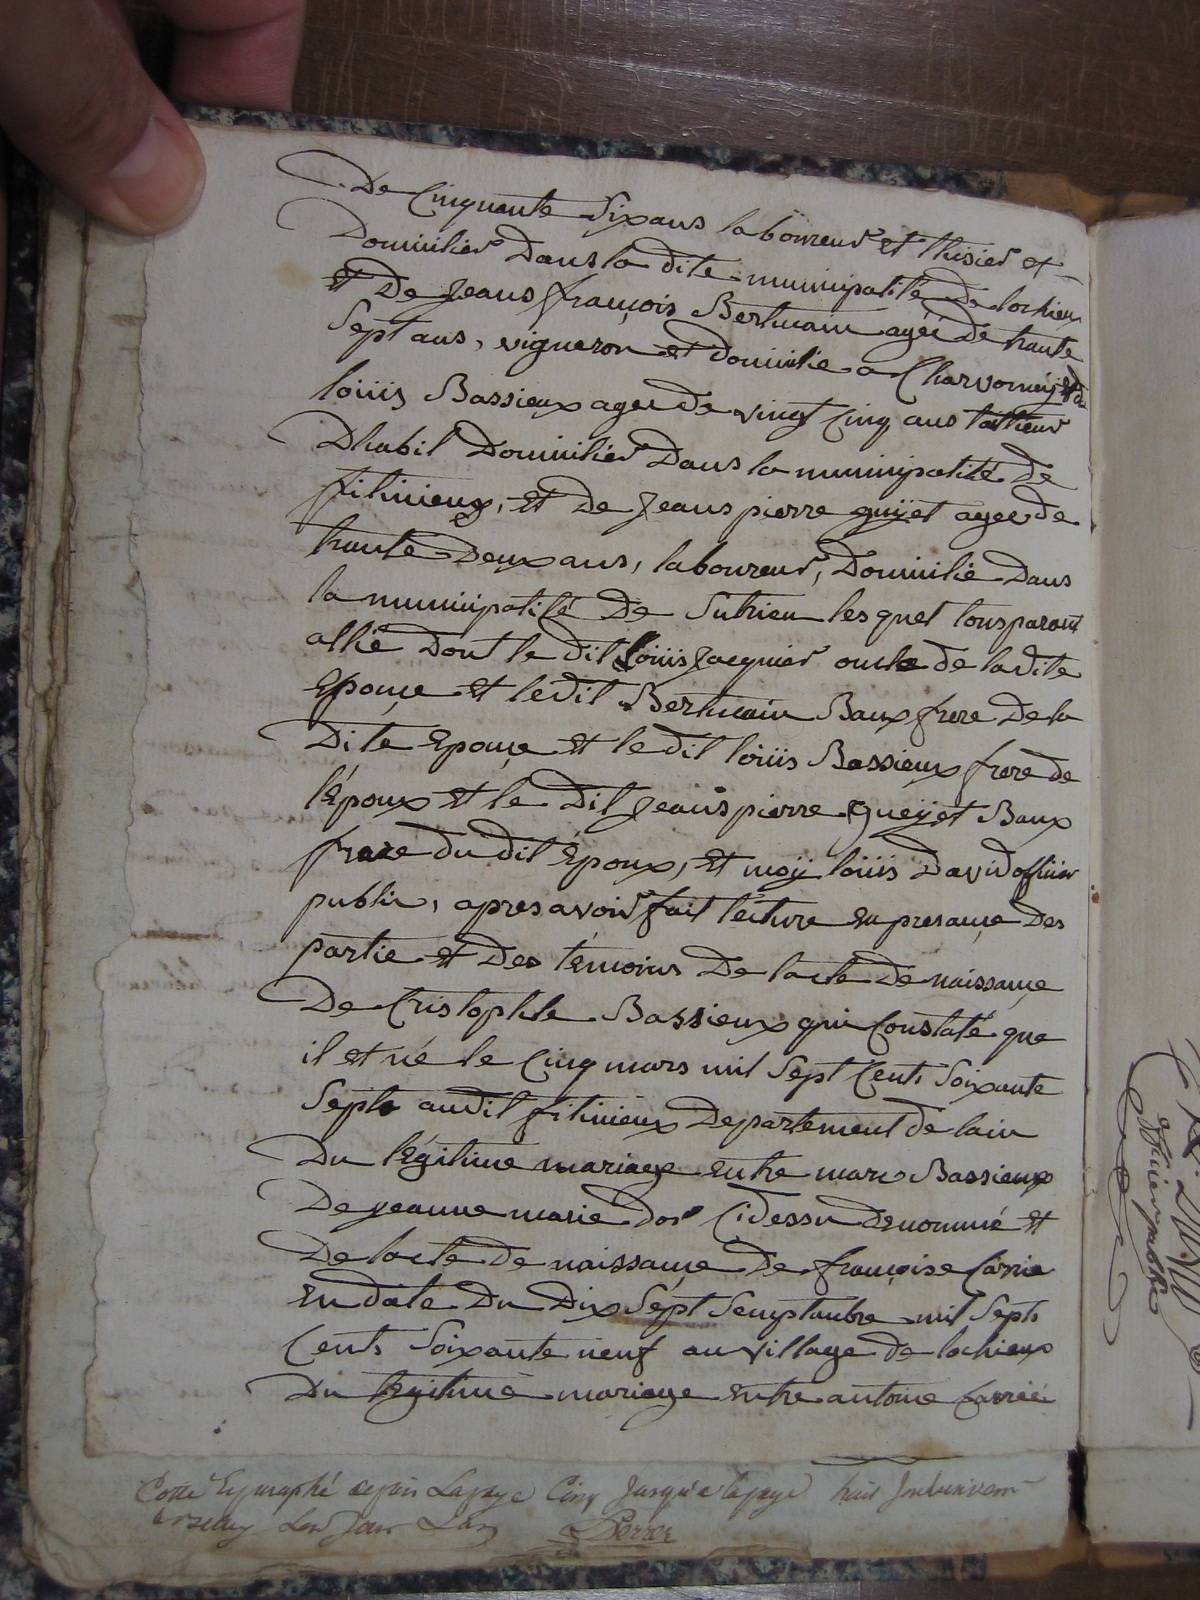 De Cinquante Six ans laboureur et thisier et
Domicilier Dans la dite municipalité De lochieu
et De Jeans françois Berthuain ageé De trante
Sept ans, vigneron et domicilié a Charvorneÿ et de
loüis Bassieux ageé De vingt Cinq ans tallieur
Dhabil Domicilier Dans la municipalité De
fitinieux, et De Jeans pierre guÿet ageé de
trante Deux ans, laboureur, Domicilié Dans
la municipalité De Sutrieu lesquel tous parant
allié Dont le dit loüis Jacquier oncle de ladite
Epouçe et ledit Berthuain Baux frere De la
Dite Epouçe et le dit loüis Bassieux frere de
l'Époux et le Dit Jeans pierre Gueÿet Baux
fraire du dit Époux, et moÿ loüis David officier
public, apres avoir fait lecture en presançe Des
partie et Des témoins De lacte De naissançe
De Cristophle Bassieux qui Constaté que
il et né le Cinq mars mil Sept Cents Soixante
Septs audit fitinieux Departement de lain
Du légitime mariage entre marc Bassieux
De jeanne marie Dor Cidessu denommé et
De lacte De naissançe De françoise Carrie
en date Du Dix Sept Semptanbre mil Septs
Cents Soixante neuf au village de lochieux
Du legitime mariage entre antoine Carrié
Cotté Et paraphé depuis La page Cinq Jusqu'a la page huit
Perrer
officier public